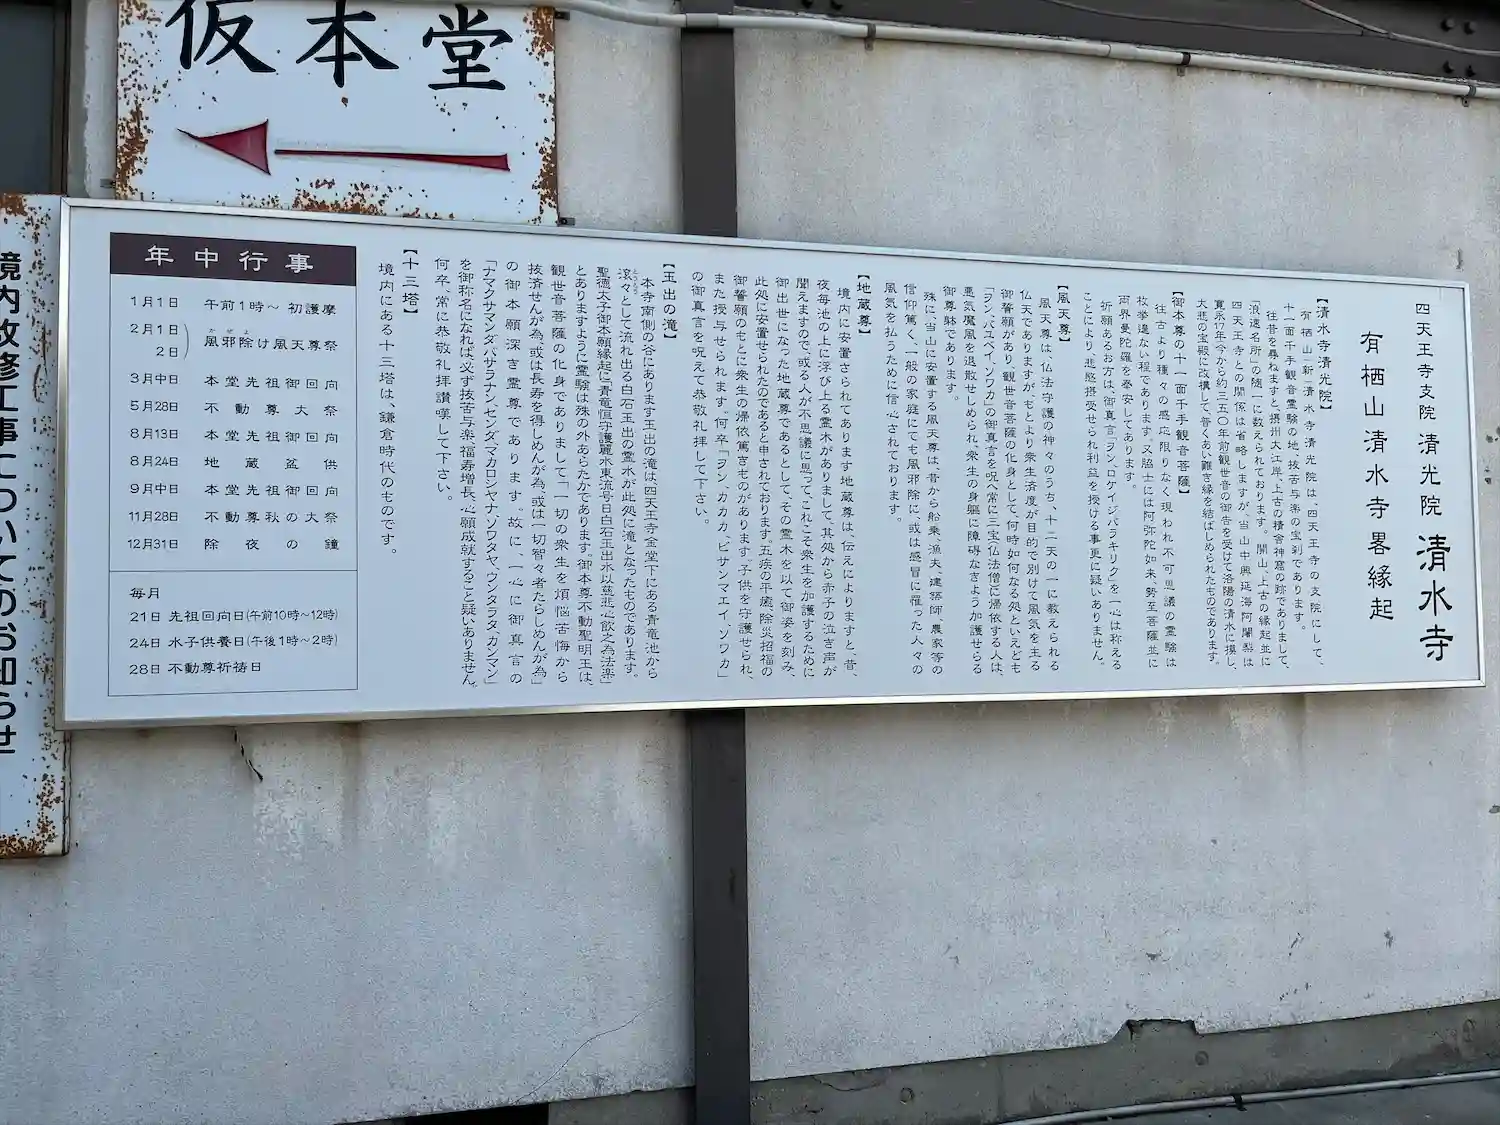 仮本堂
境内改修工事についてのお知らせ
四天王寺支院 清光院 清水寺
有栖山清水寺畧縁起
【清水寺清光院】
有栖山「新」清水寺清光院は四天王寺の支院にして、
往昔を尋ねますと、摂州大江岸、上古の積舎神窟の跡でありまして、
十一面千手観音霊験の地、抜苦与楽の宝刹であります。
「浪速名所」の随一に数えられております。 開山、上古の縁起並に
四天王寺との関係は省略しますが、当山中興延海阿闍梨は
寛永17年今から約三五〇年前観世音の御告を受けて洛陽の清水に摸し、
大悲の宝殿に改構して、普くあい難き縁を結ばしめられたものであります。
【御本尊の十一面千手観音菩薩】
往古より種々の感応限りなく現われ不可思議の霊験は
枚挙遑ない程であります。又脇士には阿弥陀如来、勢至菩薩並に
両界曼陀羅を奉安してあります。
祈願あるお方は、御真言「ヲン、ロケイジバラキリク」を一心は称える
ことにより悲愍摂受せられ利益を授ける事更に疑いありません。
【風天尊】
風天尊は、仏法守護の神々のうち、十二天の一に教えられる
仏天でありますが、もとより衆生済度が目的で別けて風気を主る
御誓願があり、観世音菩薩の化身として、何時如何なる処といえども
「ヲン、バユベイ、ソワカ」の御真言を呪へ常に三宝仏法僧に帰依する人は、
悪気魔風を退散せしめられ、衆生の身軀に障碍なきよう加護せらる
御尊躰であります。
殊に、当山に安置する風天尊は、昔から船乗、漁夫、建築師、農家等の
信仰篤く、一般の家庭にても風邪除に、或は感冒に罹った人々の
風気を払うために信心されております。
【地蔵尊】
境内に安置さられてあります地蔵尊は、伝えによりますと、昔、
夜毎池の上に浮び上る霊木がありまして、其処から赤子の泣き声が
聞えますので、或る人が不思議に思って、これこそ衆生を加護するために
御出世になった地蔵尊であるとして、その霊木を以て御姿を刻み、
此処に安置せられたのであると申されております。五疾の平癒、除災招福の
御誓願のもとに衆生の帰依篤きものがあります。子供を守護せられ、
また授与せられます。何卒「ヲン、カカカ、ビサンマエイ、ソワカ」
の御真言を呪えて恭敬礼拝して下さい。
【玉出の滝】
本寺南側の谷にあります玉出の滝は、四天王寺金堂下にある青竜池から
滾々として流れ出る白石玉出の霊水が此処に滝となったものであります。
聖徳太子御本願縁起に「青竜恒守護麗水東流号日白石玉出水以慈悲心飲之為法楽」
とありますように霊験は殊の外あらたかであります。御本尊不動聖明王は、
観世音菩薩の化身でありまして「一切の衆生を煩悩苦悔から
抜済せんが為、或は長寿を得しめんが為、或は一切智々者たらしめんが為」
の御本願深き霊尊であります。故に、一心に御真言の
「ナマクサマンダバサラナン、センダ、マカロシヤナ、ソワタヤ、ウンタラタ、カンマン」
を御称名になれば、必ず抜苦与楽福寿増長、心願成就すること疑いありません。
何卒、常に恭敬礼拝讃嘆して下さい。
【十三塔】
境内にある十三塔は、鎌倉時代のものです。
年中行事
1月1日 午前1時〜 初護摩
2月1日
2日 風邪除け風天尊祭
かぜよ
3月中日 本堂先祖御回向
5月28日 不動尊大祭
8月13日 本堂先祖御回向
8月24日 地蔵盆供
9月中日 本堂先祖御回向
11月28日 不動尊秋の大祭
12月31日 除夜の鐘
毎月
21日 先祖回向日(午前10時〜12時)
24日 水子供養日(午後1時〜2時)
28日 不動尊祈祷日